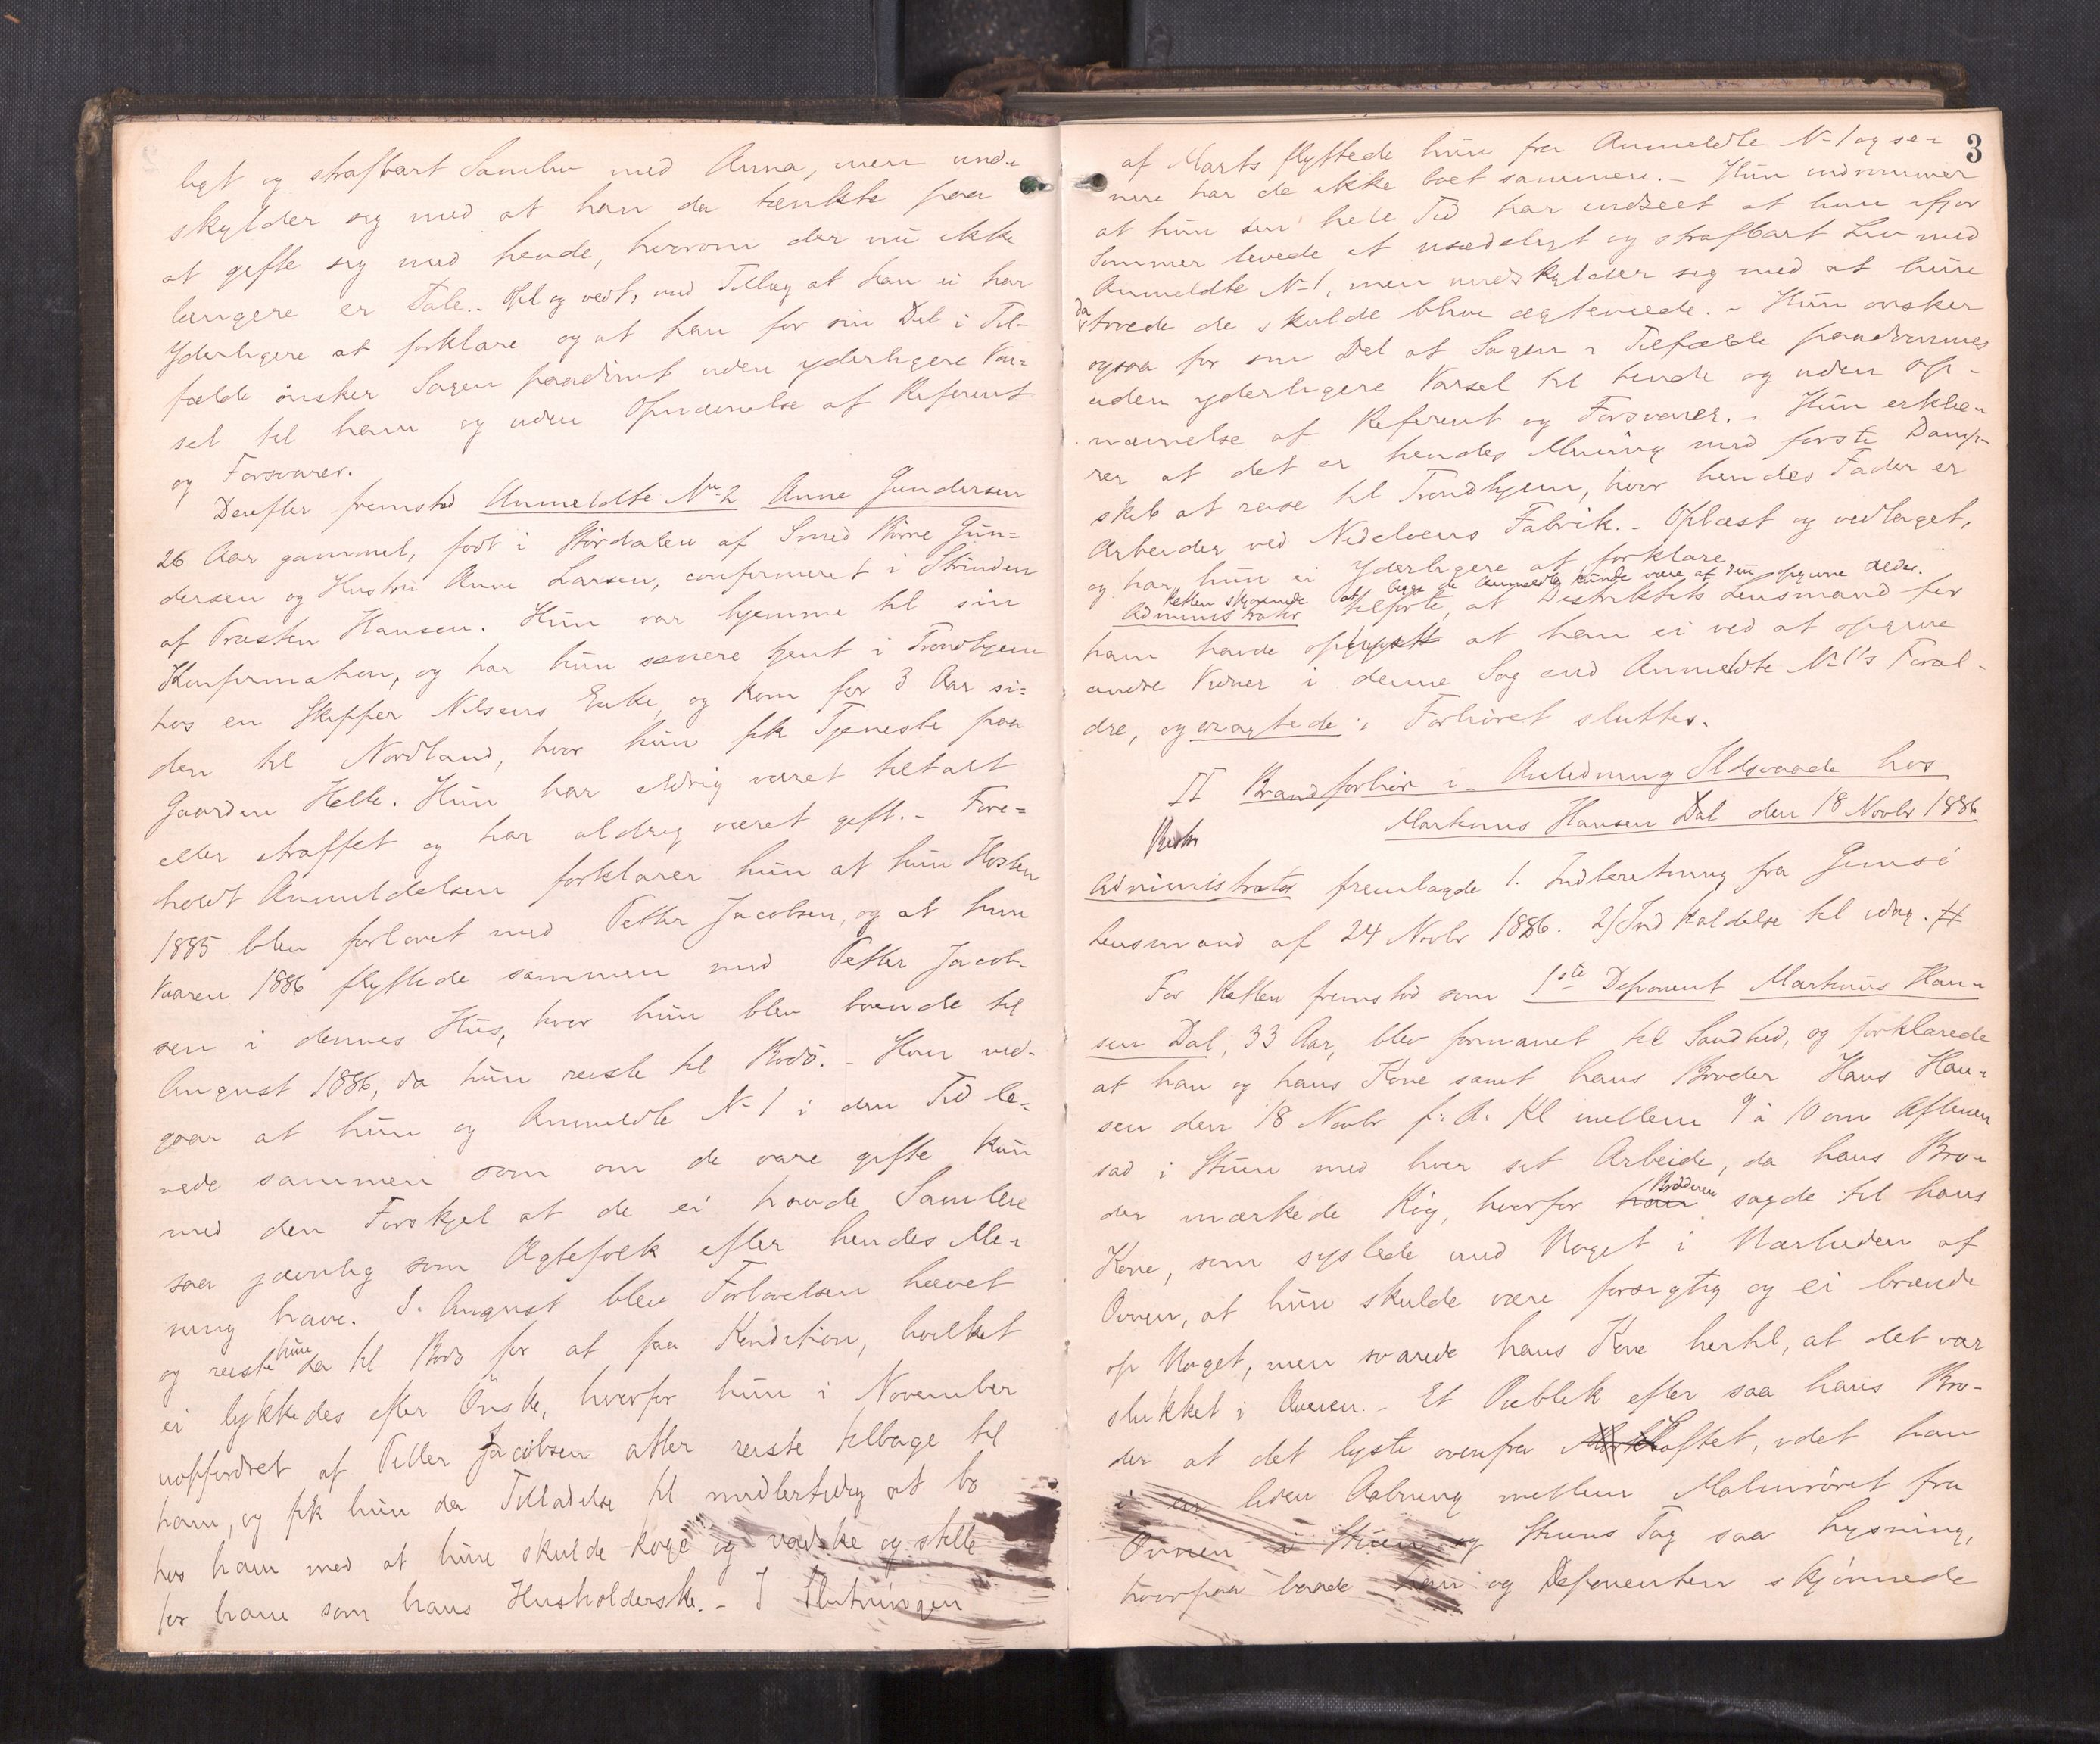 ligt og strafbart Samliv med Anna, men und-
skylder sig med at han da tænkte paa
at gifte sig med hende, hvorom der nu ikke
længere er Tale.. Opl og vedt, med Tillæg at han ei har
Yderligere at forklare og at han for sin Del i Til-
fælde ønsker Sagen paadømt uden yderligere Var=
sel til ham og uden Opnævnelse af Referent
og Forsvarer.
Derefter fremstod Anmeldte No 2 Anne Gundersen
26 Aar gammel, født i Størdalen af Smed Børre Gun=
dersen og Hustru Anne Larsen, confirmeret i Strinden
af Præsten Hansen. Hun var hjemme til sin
Konfirmation, og har hun senere tjent i Trondhjem
hos en Skipper Nilsens Enke, og kom for 3 Aar si=
den til Nordland, hvor hun fik Tjeneste paa
Gaarden Helle. Hun har aldrig været tiltalt
eller straffet og har aldrig været gift.- Fore=
holdt Anmeldelsen forklarer hun at hun Høsten
1885 blev forlovet med Petter Jacobsen, og at hun
Vaaren 1886 flyttede sammen med Petter Jacob-
sen i dennes Hus, hvor hun blev boende til
August 1886, da hun reiste til Bodö. - Hun ved-
gaar at hun og Anmeldte No 1 i den Tid le-
vede sammen som om de vare gifte kun
med den Forskjel at de ei havde Samleie
saa jævnlig som Ægtefolk efter hendes Me-
ning have. I August blev Forlovelsen hævet
og reiste hun da til Bodö for at faa Kondition, hvilket
ei lykkedes efter Ønske, hvorfor hun i November
uopfordret af Petter Jacobsen atter reiste tilbage til
ham, og fik hun da Tilladelse til midlertidig at bo
hos ham med at hun skulde koge og vadske og stelle
for ham som hans Husholderske. - I Slutningen
3
af Marts flyttede hun fra Anmeldte No 1 og se-
nere har de ikke boet sammen. - Hun indrømmer
at hun den hele Tid har indseet at hun ifjor
Sommer levede et usædeligt og strafbart Liv med
Anmeldte No 1, men undskylder sig med at hun
da troede de skulde blive ægteviede. - Hun ønsker
ogsaa for sin Del at Sagen i Tilfælde paadømmes
uden yderligere Varsel til hende og uden Op-
nævnelse af Referent og Forsvarer. - Hun erklæ-
rer at det er hendes Mening med første Damp-
skib at reise til Trondhjem, hvor hendes Fader er
Arbeider ved Nidelvens Fabrik. - Oplæst og vedtaget,
og har hun ei Yderligere at forklare
Retten skjønnede at begge de Anmeldte kunde være af den opgivne Alder.
Administrator tilførte, at Distriktets Lensmand for
ham havde oplyst at han ei ved at opgive
andre Vidner i denne Sag end Anmeldte No 1's Foræl-
dre, og eragtede: Forhøret sluttes.
II Brandforhør i Anledning Ildsvaade hos
Markinus Hansen Dal den 18 Novbr 1886
Administrator fremlagde 1. Indberetning fra Gimsö
Lensmand af 24 Novbr 1886. 2/ Indkaldelse til idag. #
For Retten fremstod som 1ste Deponent Martinus Han-
sen Dal, 33 Aar, blev formanet til Sandhed, og forklarede
at han og hans Kone samt hans Broder Hans Han-
sen den 18 Novbr f: A: Kl mellem 9 à 10 om Aftenen
sad i Stuen med hver sit Arbeide, da hans Bro-
der mærkede Røg, hvorfor han Broderen sagde til hans
Kone, som syslede med Noget i Nærheden af
Ovnen, at hun skulde være forsigtig og ei brænde
op Noget, men svarede hans Kone hertil, at det var
slukket i Ovnen. - Et Øieblik efter saa hans Bro-
der at det lyste ovenfra Loftet, idet han
i en liden Aabning mellem Malmrøret fra
Ovnen i Stuen og Stuens Tag saa Lysning,
hvorpaa baade han og Deponenten skjønnede